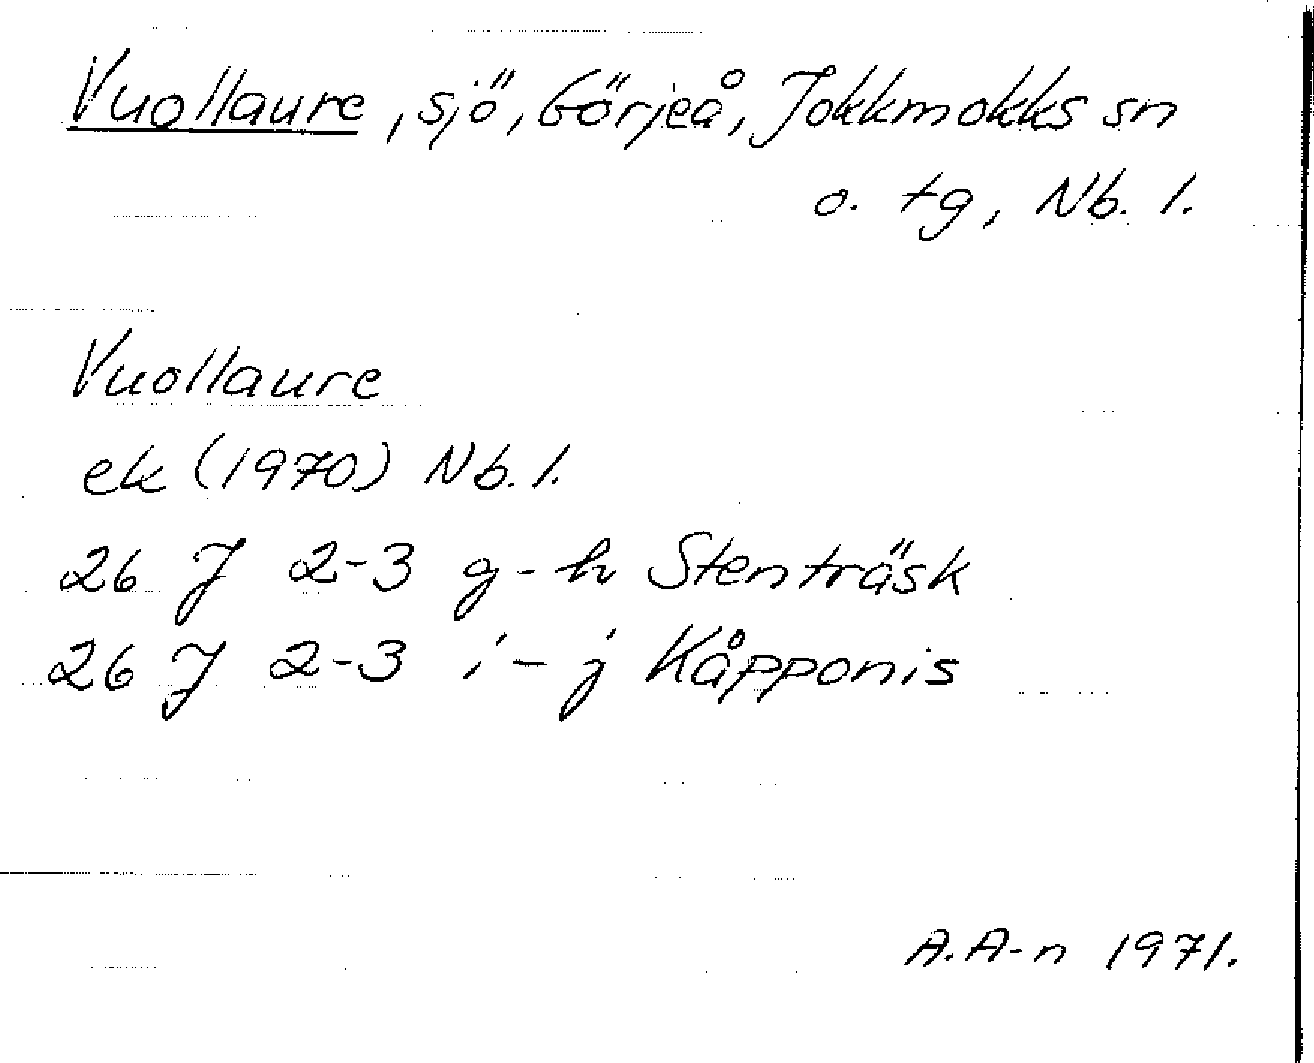 Vuollaure, sjö, Görjeå, Jokkmokks sn
o. tg, Nb. l.
Vuollaure
ek (1970) Nb. l.
26 J 2-3 g-h Stenträsk
26 J 2-3 i-j Kåpponis
A. A-n 1971.